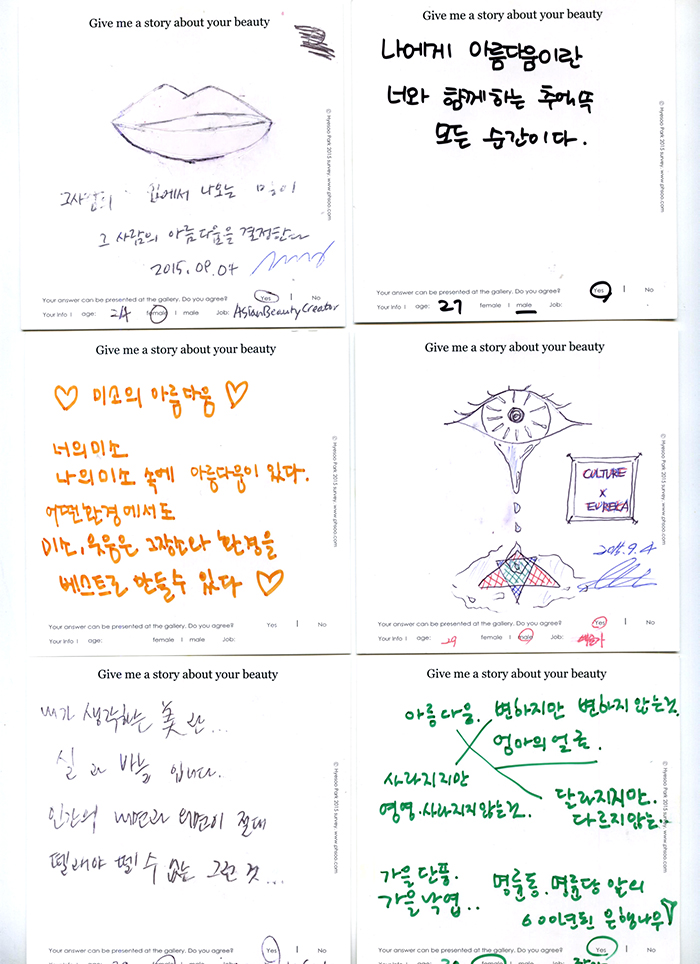 Give me a story about your beauty
그사람의 입에서 나오는 말이
그 사람의 아름다움을 결정한다
2015.09.04
© Hyesoo Park 2015 survey. www.phsoo.com
Your answer can be presented at the gallery. Do you agree? Yes | No
Your Info | age: 24 female | male Job: Asian Beauty Creator
Give me a story about your beauty
나에게 아름다움이란
너와 함께하는
모든 순간이다.
© Hyesoo Park 2015 survey. www.phsoo.com
Your answer can be presented at the gallery. Do you agree? Yes | No
Your Info | age: 27 female | male Job:
Give me a story about your beauty
♡ 미소의 아름다움 ♡
너의 미소
나의 미소 속에 아름다움이 있다.
어떤 환경에서도
미소, 웃음은 그 장소나 환경을
베스트로 만들수 있다 ♡
© Hyesoo Park 2015 survey. www.phsoo.com
Your answer can be presented at the gallery. Do you agree? Yes | No
Your Info | age: female | male Job:
Give me a story about your beauty
CULTURE
X
EUREKA
© Hyesoo Park 2015 survey. www.phsoo.com
Your answer can be presented at the gallery. Do you agree? Yes | No
Your Info | age: 29 female | male Job:
Give me a story about your beauty
내가 생각하는 美란...
실과 바늘 입니다.
인간의 내면과 외면이 절대
뗄래야 뗄 수 없는 그런 것...
© Hyesoo Park 2015 survey. www.phsoo.com
Your answer can be presented at the gallery. Do you agree? Yes | No
Give me a story about your beauty
아름다움. 변하지만 변하지 않는것.
엄마의 얼굴.
사라지지만
영영 사라지지 않는것.
달라지지만.
다르지않는..
가을 단풍.
가을 낙엽..
명륜동. 명륜당 앞의
600년된 은행나무
© Hyesoo Park 2015 survey. www.phsoo.com
Your answer can be presented at the gallery. Do you agree? Yes | No